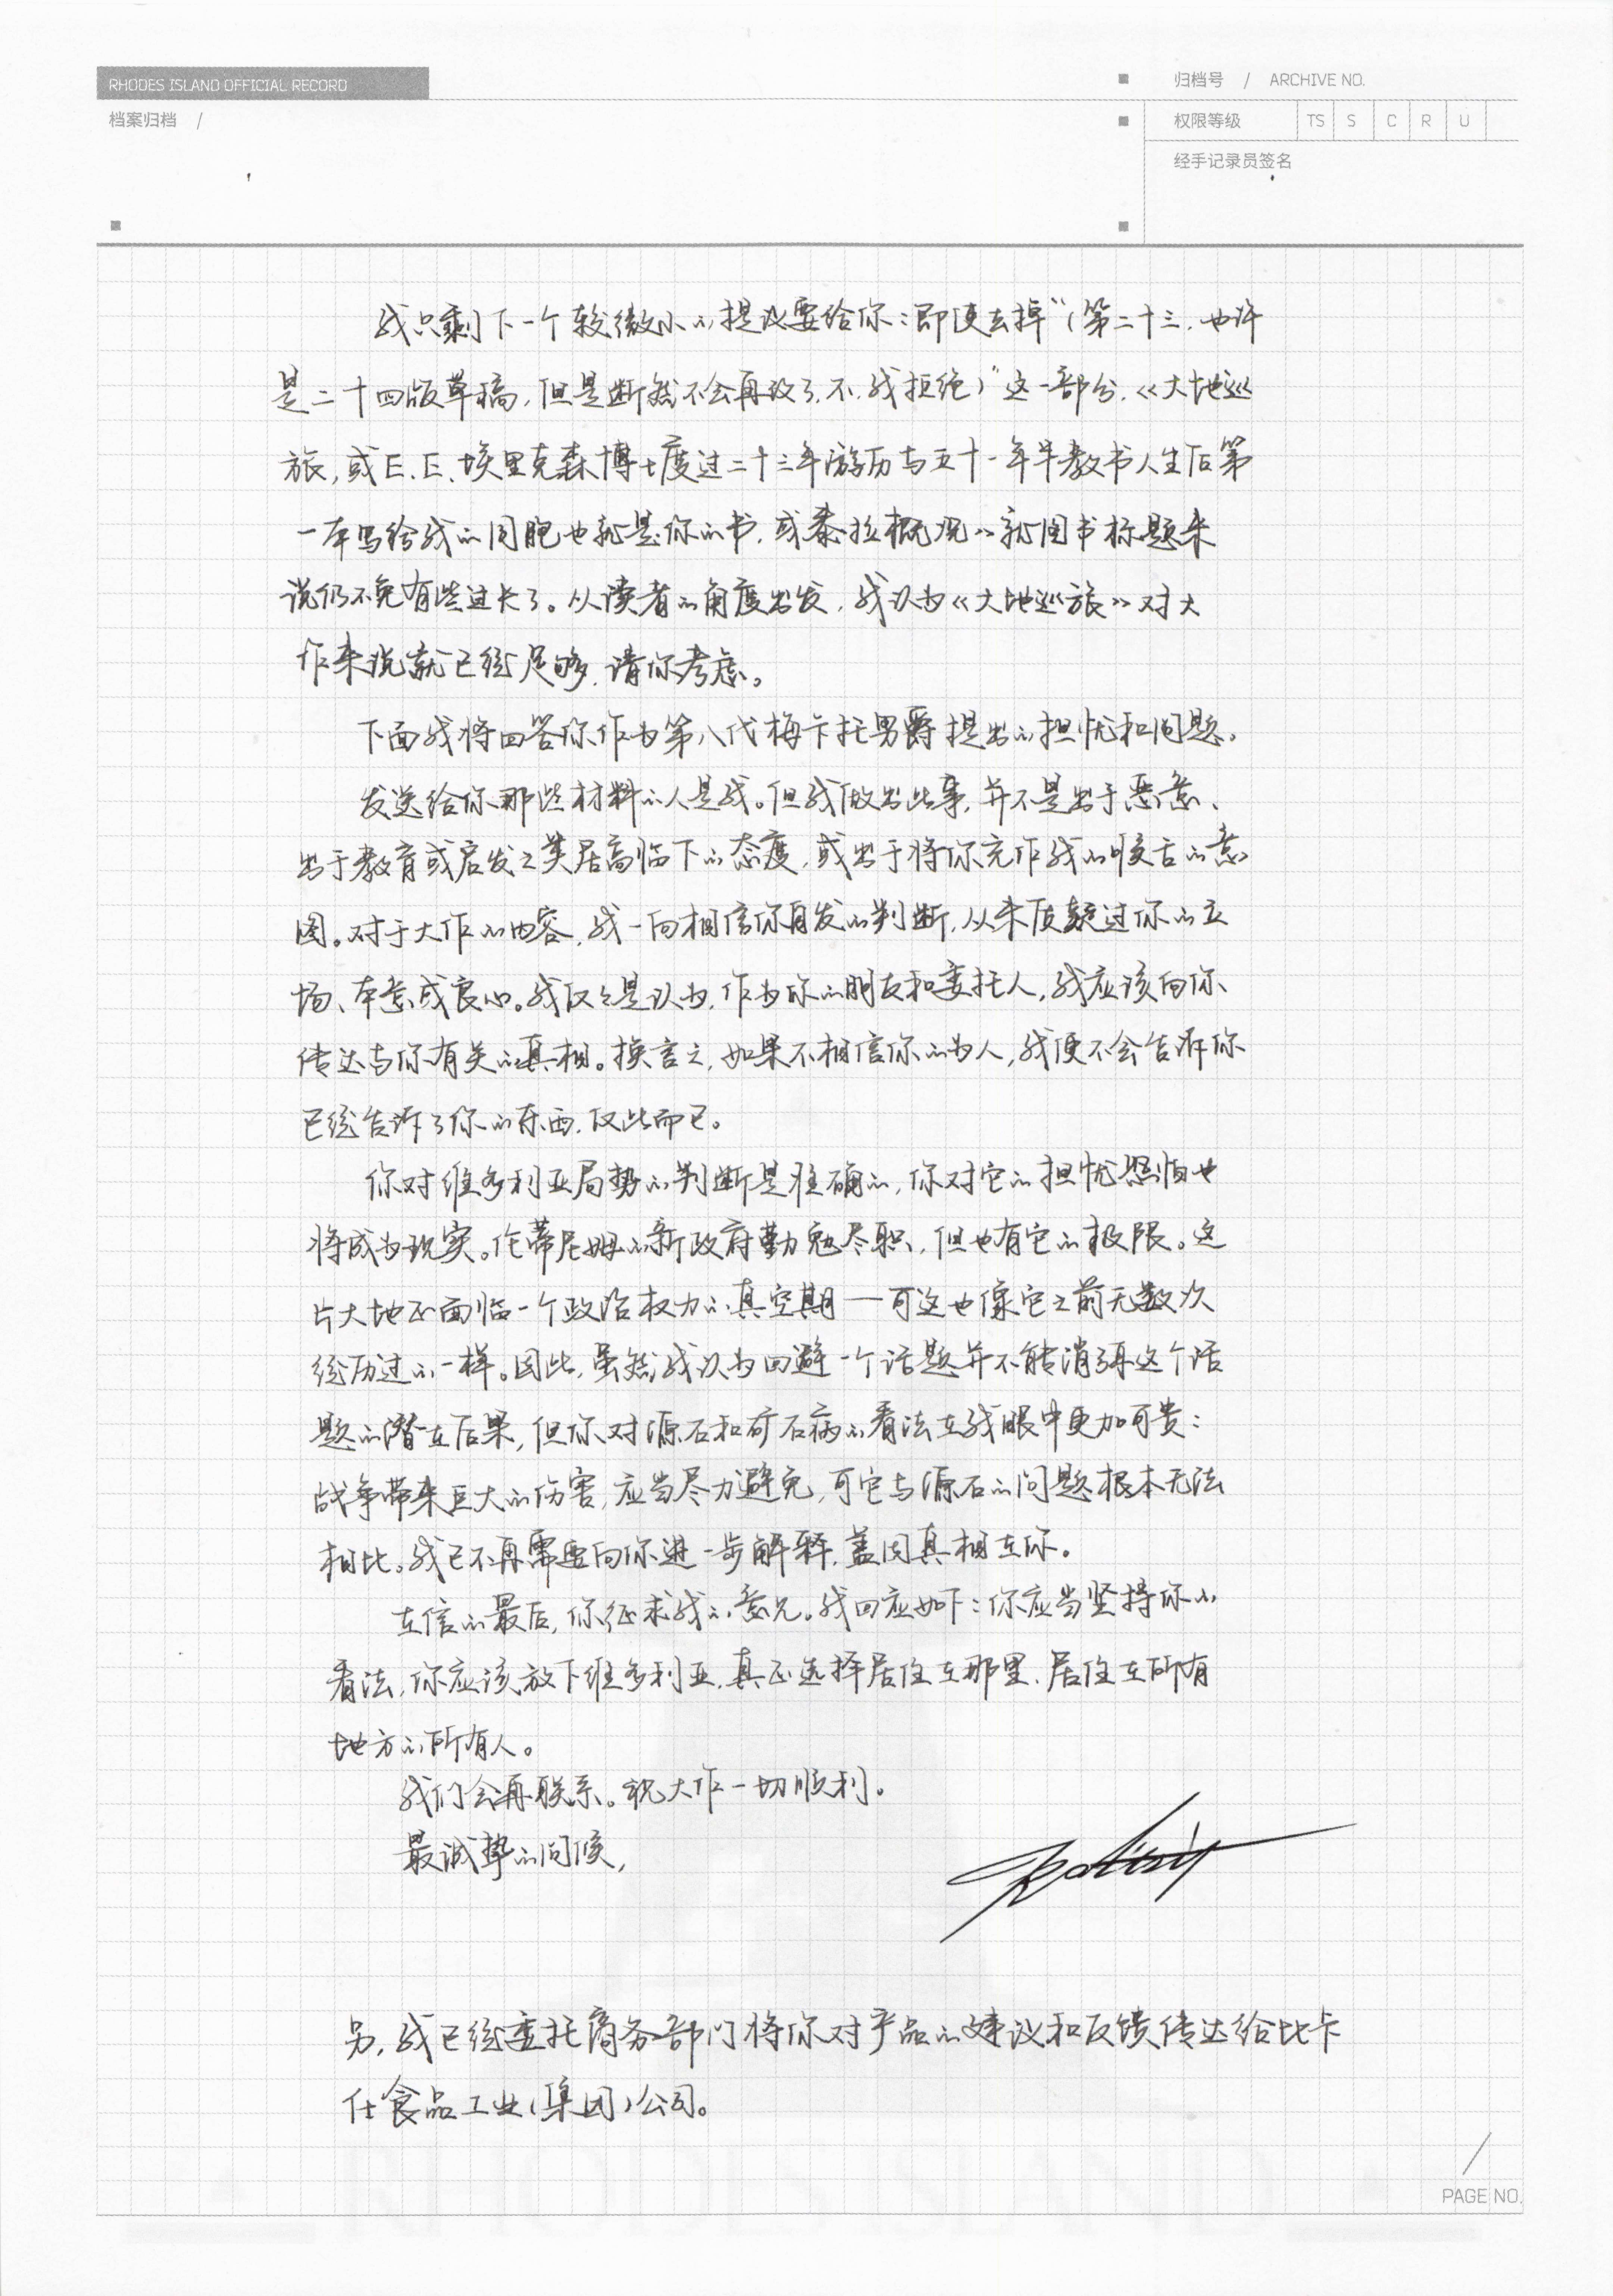 RHODES ISLAND OFFICIAL RECORD
归档号 / ARCHIVE NO.
档案归档 /
权限等级 TS S C R U
经手记录员签名
我只剩下一个较微小的提议要给你:即便去掉“(第二十三,也许
是二十四版草稿,但是断然不会再改了,不,我拒绝)”这一部分,《大地巡
旅,或E.E.埃里克森博士度过二十三年游历与五十一年半教书人生后第
一本写给我的同胞也就是你的书,或泰拉概况》就图书标题来
说仍不免有些过长了。从读者的角度出发,我认为《大地巡旅》对大
作来说就已经足够,请你考虑。
下面我将回答你作为第八代梅卡托男爵提出的担忧和问题。
发送给你那些材料的人是我。但我做出此事,并不是出于恶意、
出于教育或启发之类居高临下的态度,或出于将你充作我的喉舌的意
图。对于大作的内容,我一向相信你自发的判断,从未质疑过你的立
场、本意或良心。我仅仅是认为,作为你的朋友和委托人,我应该向你
传达与你有关的真相。换言之,如果不相信你的为人,我便不会告诉你
已经告诉了你的东西,仅此而已。
你对维多利亚局势的判断是准确的,你对它的担忧恐怕也
将成为现实。伦蒂尼姆的新政府勤勉尽职,但也有它的极限。这
片大地正面临一个政治权力的真空期——可这也像它之前无数次
经历过的一样。因此,虽然我认为回避一个话题并不能消弭这个话
题的潜在后果,但你对源石和矿石病的看法在我眼中更加可贵:
战争带来巨大的伤害,应当尽力避免,可它与源石的问题根本无法
相比。我已不再需要向你进一步解释,盖因真相在你。
在信的最后,你征求我的意见。我回应如下:你应当坚持你的
看法,你应该放下维多利亚,真正选择居住在那里、居住在所有
地方的所有人。
我们会再联系。祝大作一切顺利。
最诚挚的问候,
另,我已经委托商务部门将你对产品的建议和反馈传达给比卡
仕食品工业(集团)公司。
PAGE NO.
RHODES ISLAND